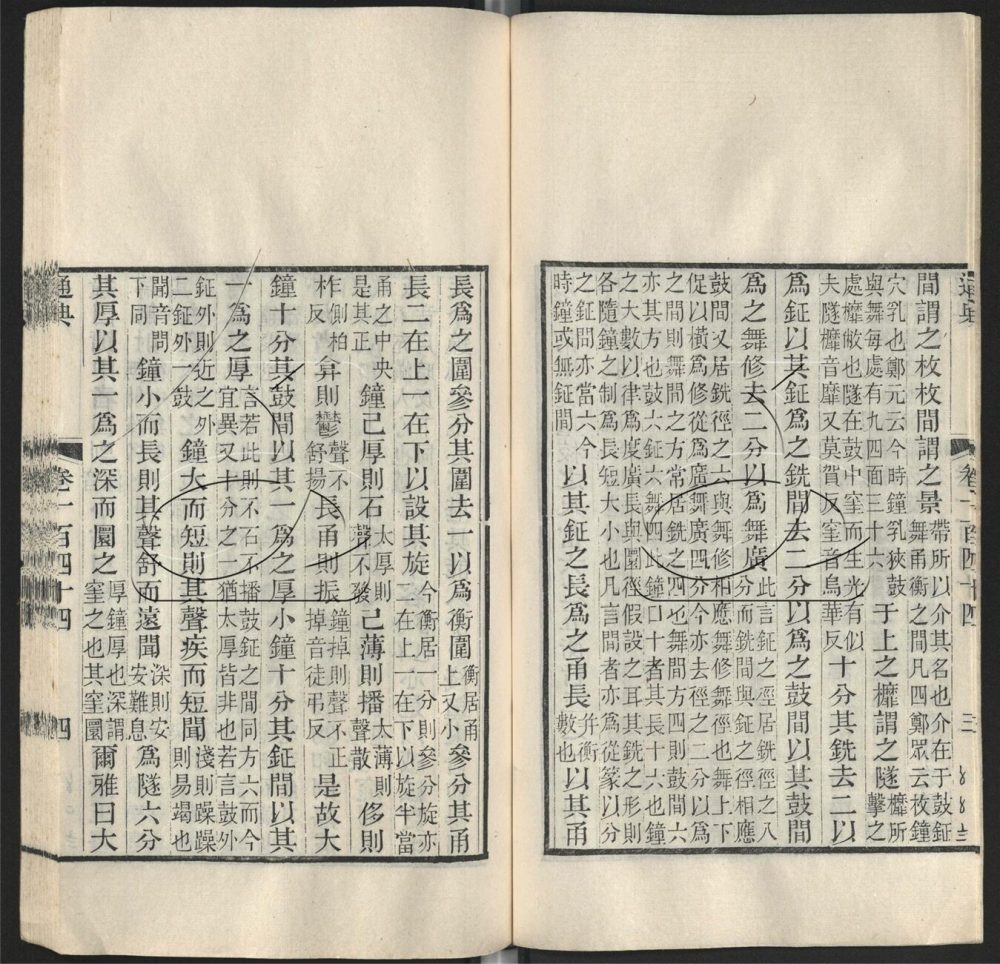 通典 卷一百四十四 三
間謂之枚枚間謂之景帶所以介其名也介在于鼓鉦
舞甬衡之間凡四鄭眾云枚鐘
穴乳也鄭元云今時鐘乳狹鼓
與舞每處有九四面三十六于上之攠謂之隧攠所
擊之
處攠敝也隧在鼓中窐而生光有似
夫隧攠音靡又莫賀反窐音烏華反十分其銑去二以
爲鉦以其鉦爲之銑間去二分以爲之鼓間以其鼓間
爲之舞修去二分以爲舞廣此言鉦之徑居銑徑之八
分而銑間與鉦之徑相應
鼓間又居銑徑之六與舞修相應舞修舞徑也舞上下
促以橫爲修從爲廣舞廣四分今亦去徑之二分以爲
之間則舞間之方常居銑之四也舞間方四則鼓間六
亦其方也鼓六鉦六舞四此鐘口十者其長十六也鐘
之大數以律爲度廣長與圜徑假設之耳其銑之形則
各隨鐘之制爲長短大小也凡言間者亦爲從篆以分
之鉦間亦當六今
時鐘或無鉦間以其鉦之長爲之甬長并衡
數也以其甬
長爲之圍參分其圍去一以爲衡圍衡居甬
上又小參分其甬
長二在上一在下以設其旋今衡居一分則參分旋亦
二在上一在下以旋半當
甬之中央
是其正鐘已厚則石太厚則
聲不發已薄則播太薄則
聲散侈則
柞側柏
反弇則鬱聲不
舒揚長甬則振鐘掉則聲不正
掉音徒弔反是故大
鐘十分其鼓間以其一爲之厚小鐘十分其鉦間以其
一爲之厚言若此則不石不播鼓鉦之間同方六而今
宜異又十分之一猶太厚皆非也若言鼓外
鉦外則近之鼓外
二鉦外一鐘大而短則其聲疾而短聞淺則躁躁
則易竭也
聞音問
下同鐘小而長則其聲舒而遠聞深則安
安難息爲隧六分
其厚以其一爲之深而圜之厚鐘厚也深謂
窐之也其窐圜爾雅曰大
通典 卷一百四十四 四